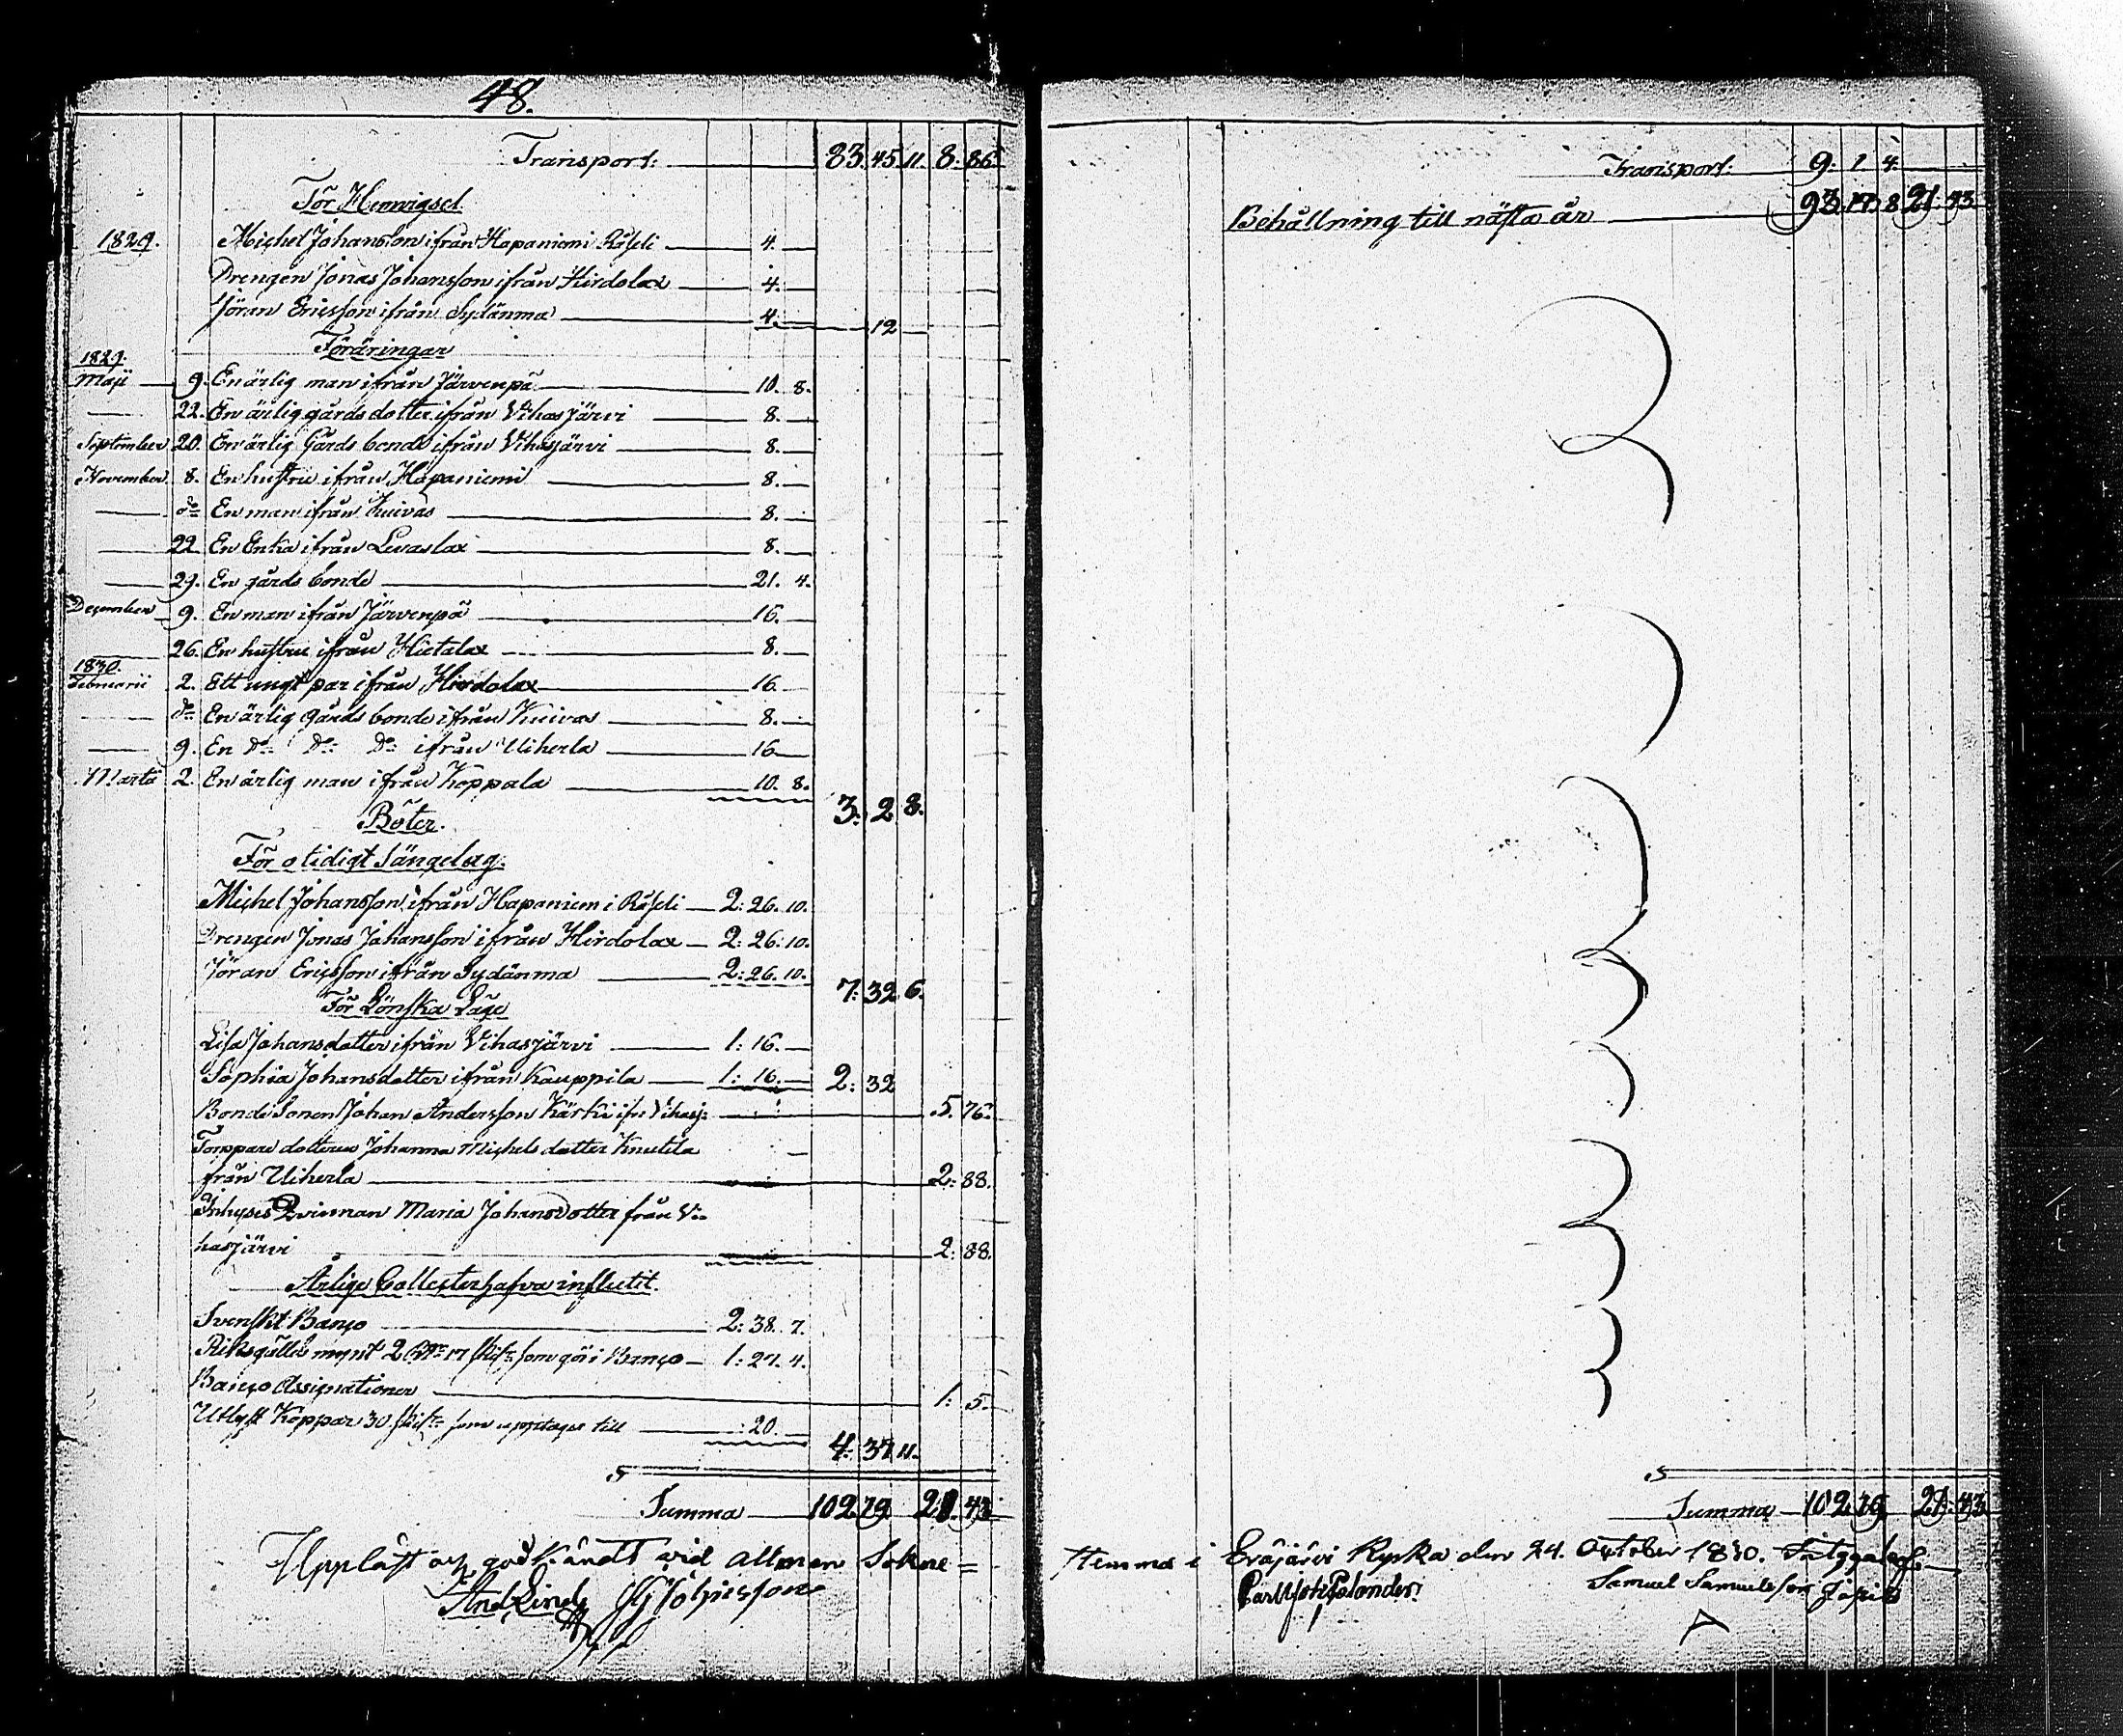 48.
Transport: 83. 45. 11. 8: 86.
För Hemwigsel.
1829. Michel Johansson ifrån Hapaniemi Råseli 4.
Drengen Jonas Johansson ifrån Hirdolax 4.
Jöran Ericsson ifrån Sydänma 4. 12
Föräringar
1829.
Maji 9. En ärlig man ifrån Järvenpä 10. 8.
22. En ärlig gårds dotter ifrån Vihasjärvi 8.
September 20. En ärlig Gårds bonde ifrån Vihasjärvi 8.
November 8. En hustru ifrån Hapaniemi 8.
do En man ifrån Kuivas 8.
22. En Enka ifrån Levaslax 8.
29. En gårds bonde 21. 4.
December 9. En man ifrån Järvenpä 16.
26. En hustru ifrån Hietalax 8.
1830.
Februarii 2. Ett ungt par ifrån Hirdolax 16
do En ärlig Gårds bonde ifrån Kuivas 8.
9. En do do do ifrån Uiherla 16
Martii 2. En ärlig man ifrån Koppala 10. 8.
3: 2 8.
Böter.
För otidigt Sängelag.
Michel Johansson ifrån Hapaniemi Råseli 2: 26. 10.
Drengen Jonas Johansson ifrån Hirdolax 2: 26: 10.
Jöran Ericsson ifrån Sydänma 2: 26. 10.
7: 32 6.
För Lönska Läge
Lisa Johansdotter ifrån Vihasjärvi 1: 16.
Sophia Johansdotter ifrån Kauppila 1: 16. 2: 32
Bonde Sonen Johan Andersson Kärki ifr: Vihasj: 5. 76.
Torppare dotteren Johanna Michels dotter Knutila
från Uiherla 2: 88.
Inhyses Qvinnan Maria Johansdotter från Vi=
hasjärvi 2: 88.
Årlige Collecter hafva influtit.
Svenskt Banco 2: 38. 7.
Riksgälds mynt 2 Rdr 17 sk: som gör i Banco 1: 27. 4.
Banco Assignationer 1: 5.
Utlyst Koppar 30 sk: som upptages till 20.
4: 37 11.
Summa 102 19 21. 43
Uppläst och godkändt vid allmän Sokne=
And Lind
Transport: 9: 1. 4.
Behållning till nästa år 93. 17. 8 21. 43
Summa 102 19 21: 43
stemma i Eräjärvi Kyrka den 24. October 1830.
Carl Joh Palander.
Samuel Samuelsson